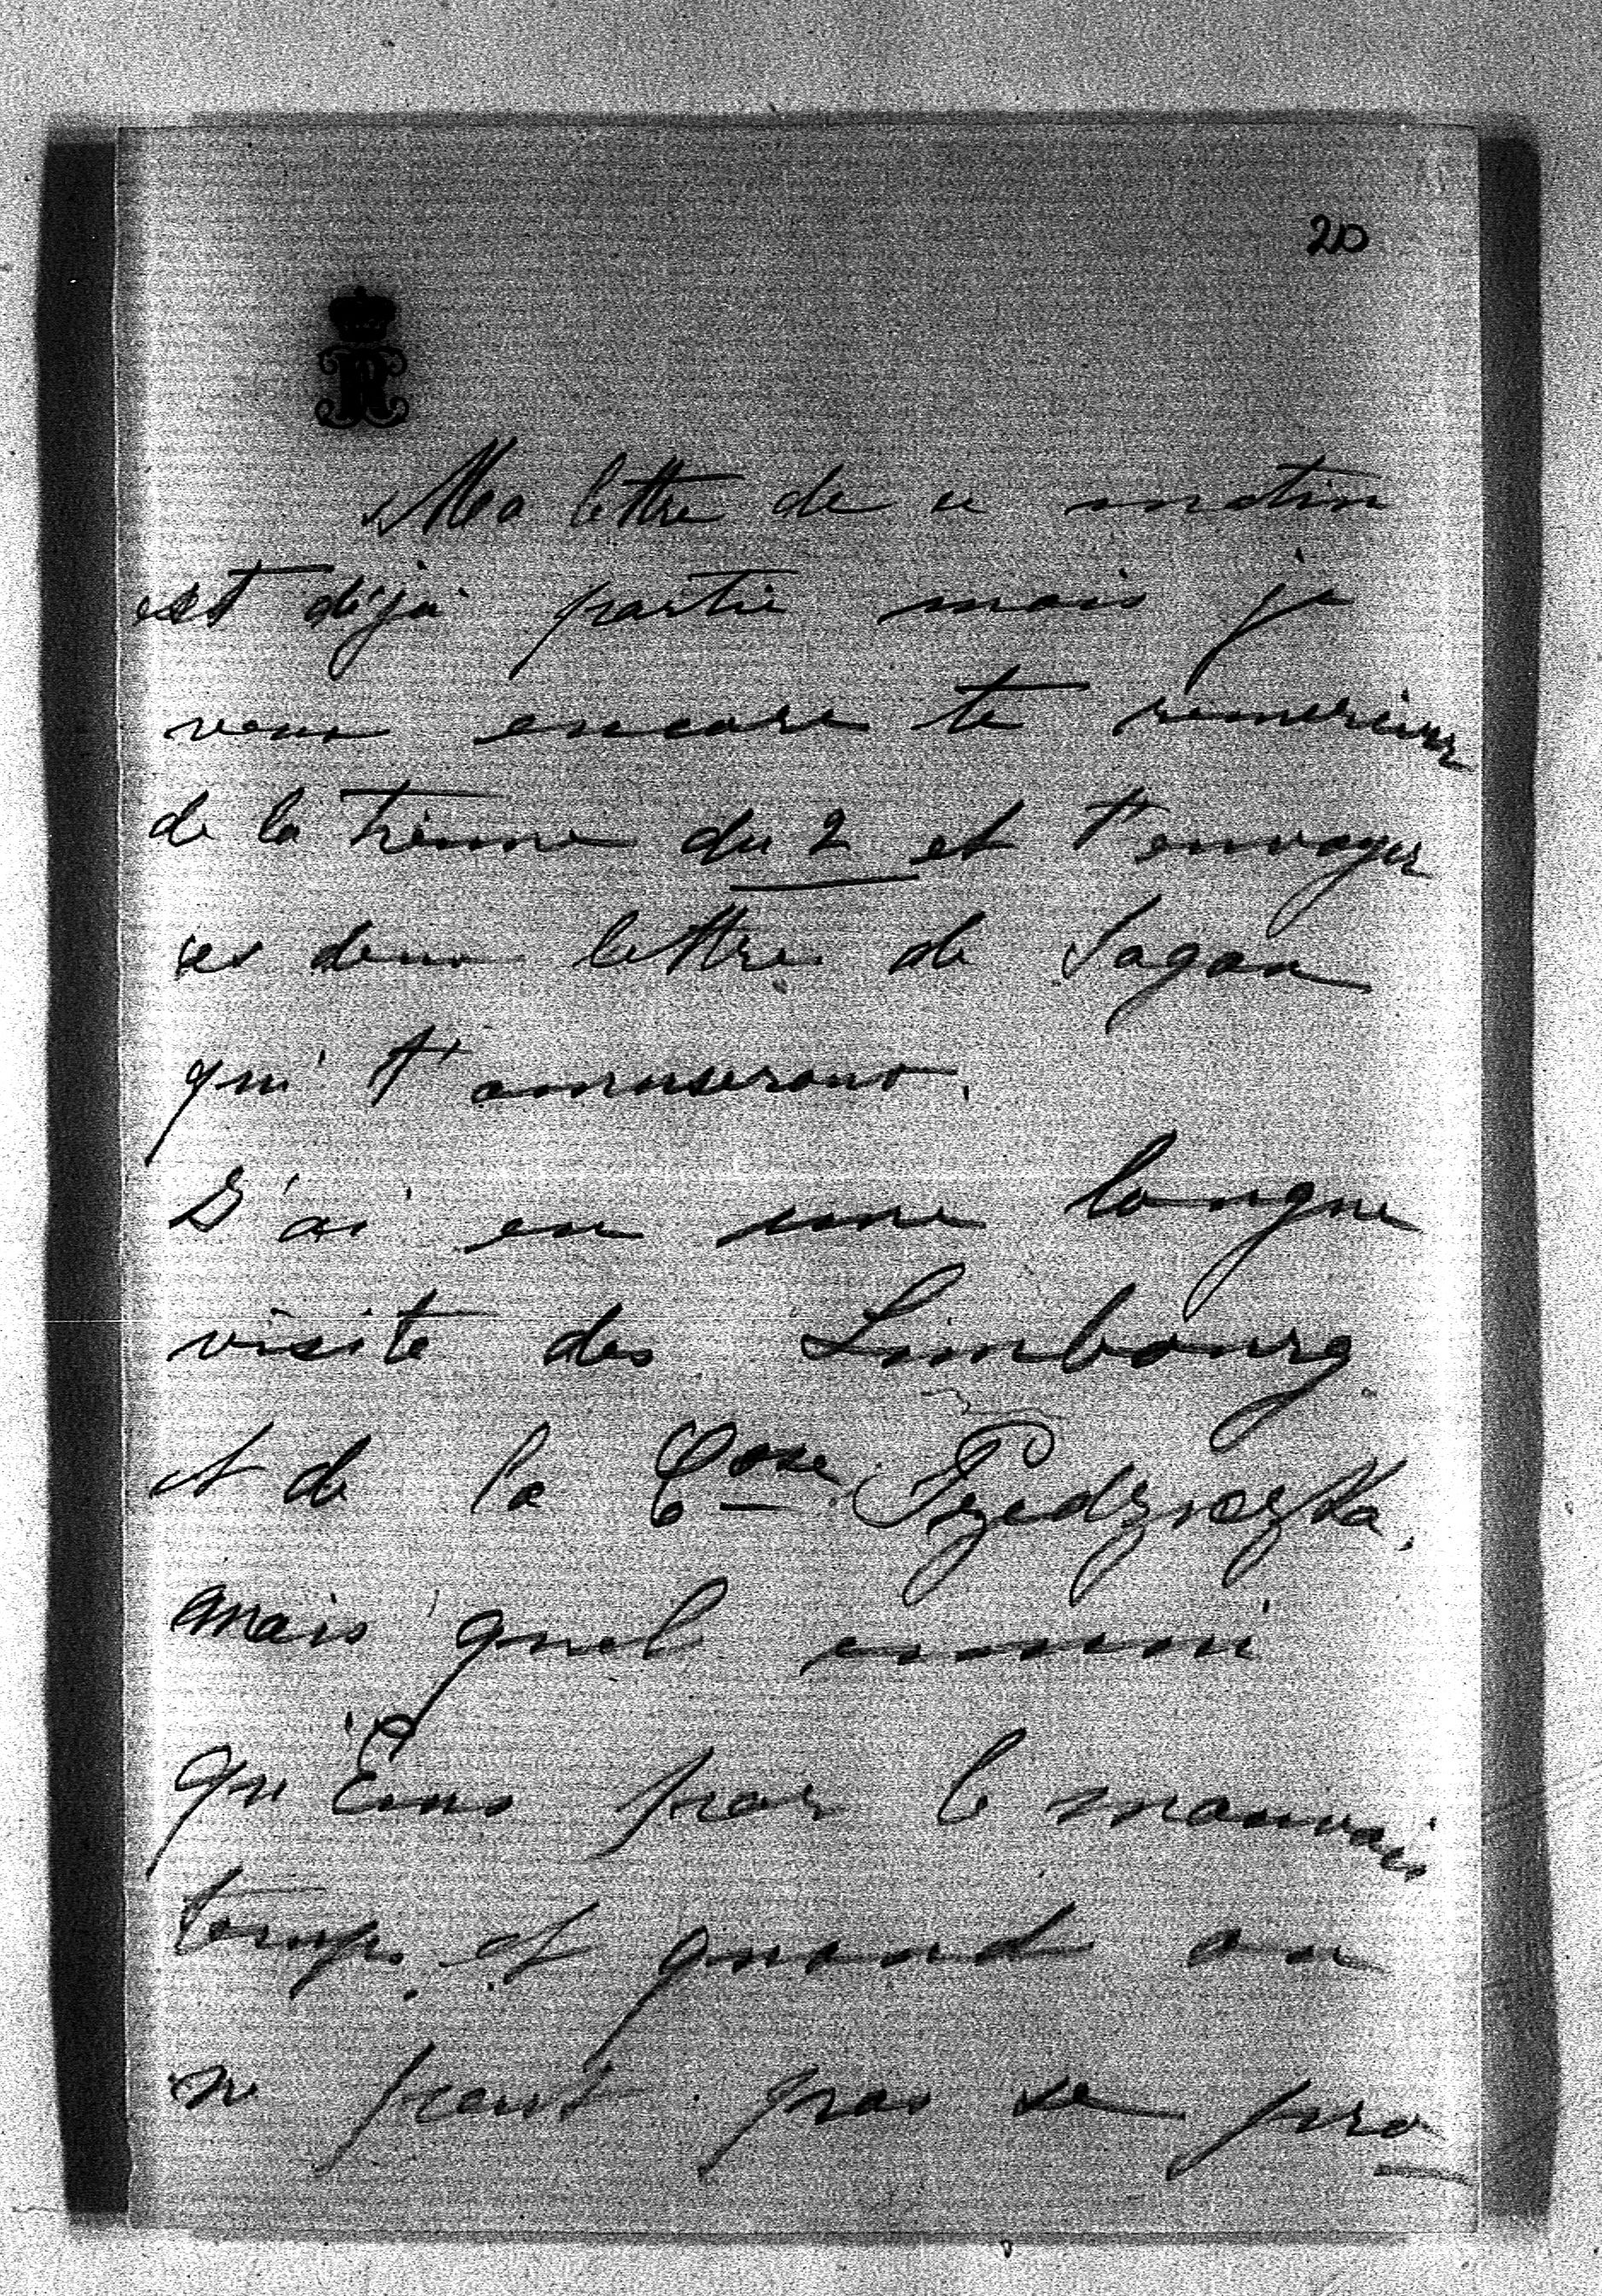 20
Ma lettre de ce matin
est déjà partie mais je
veux encore te remercier
de la tienne du 2 et t'envoyer
ces deux lettres de Sagan
qui t'amuseront.
J'ai eu une longue
visite des Limbourg
et de la Ctsse
mais quel ennui
qu'Ems par le mauvais
temps et quand on
ne peut pas se pro